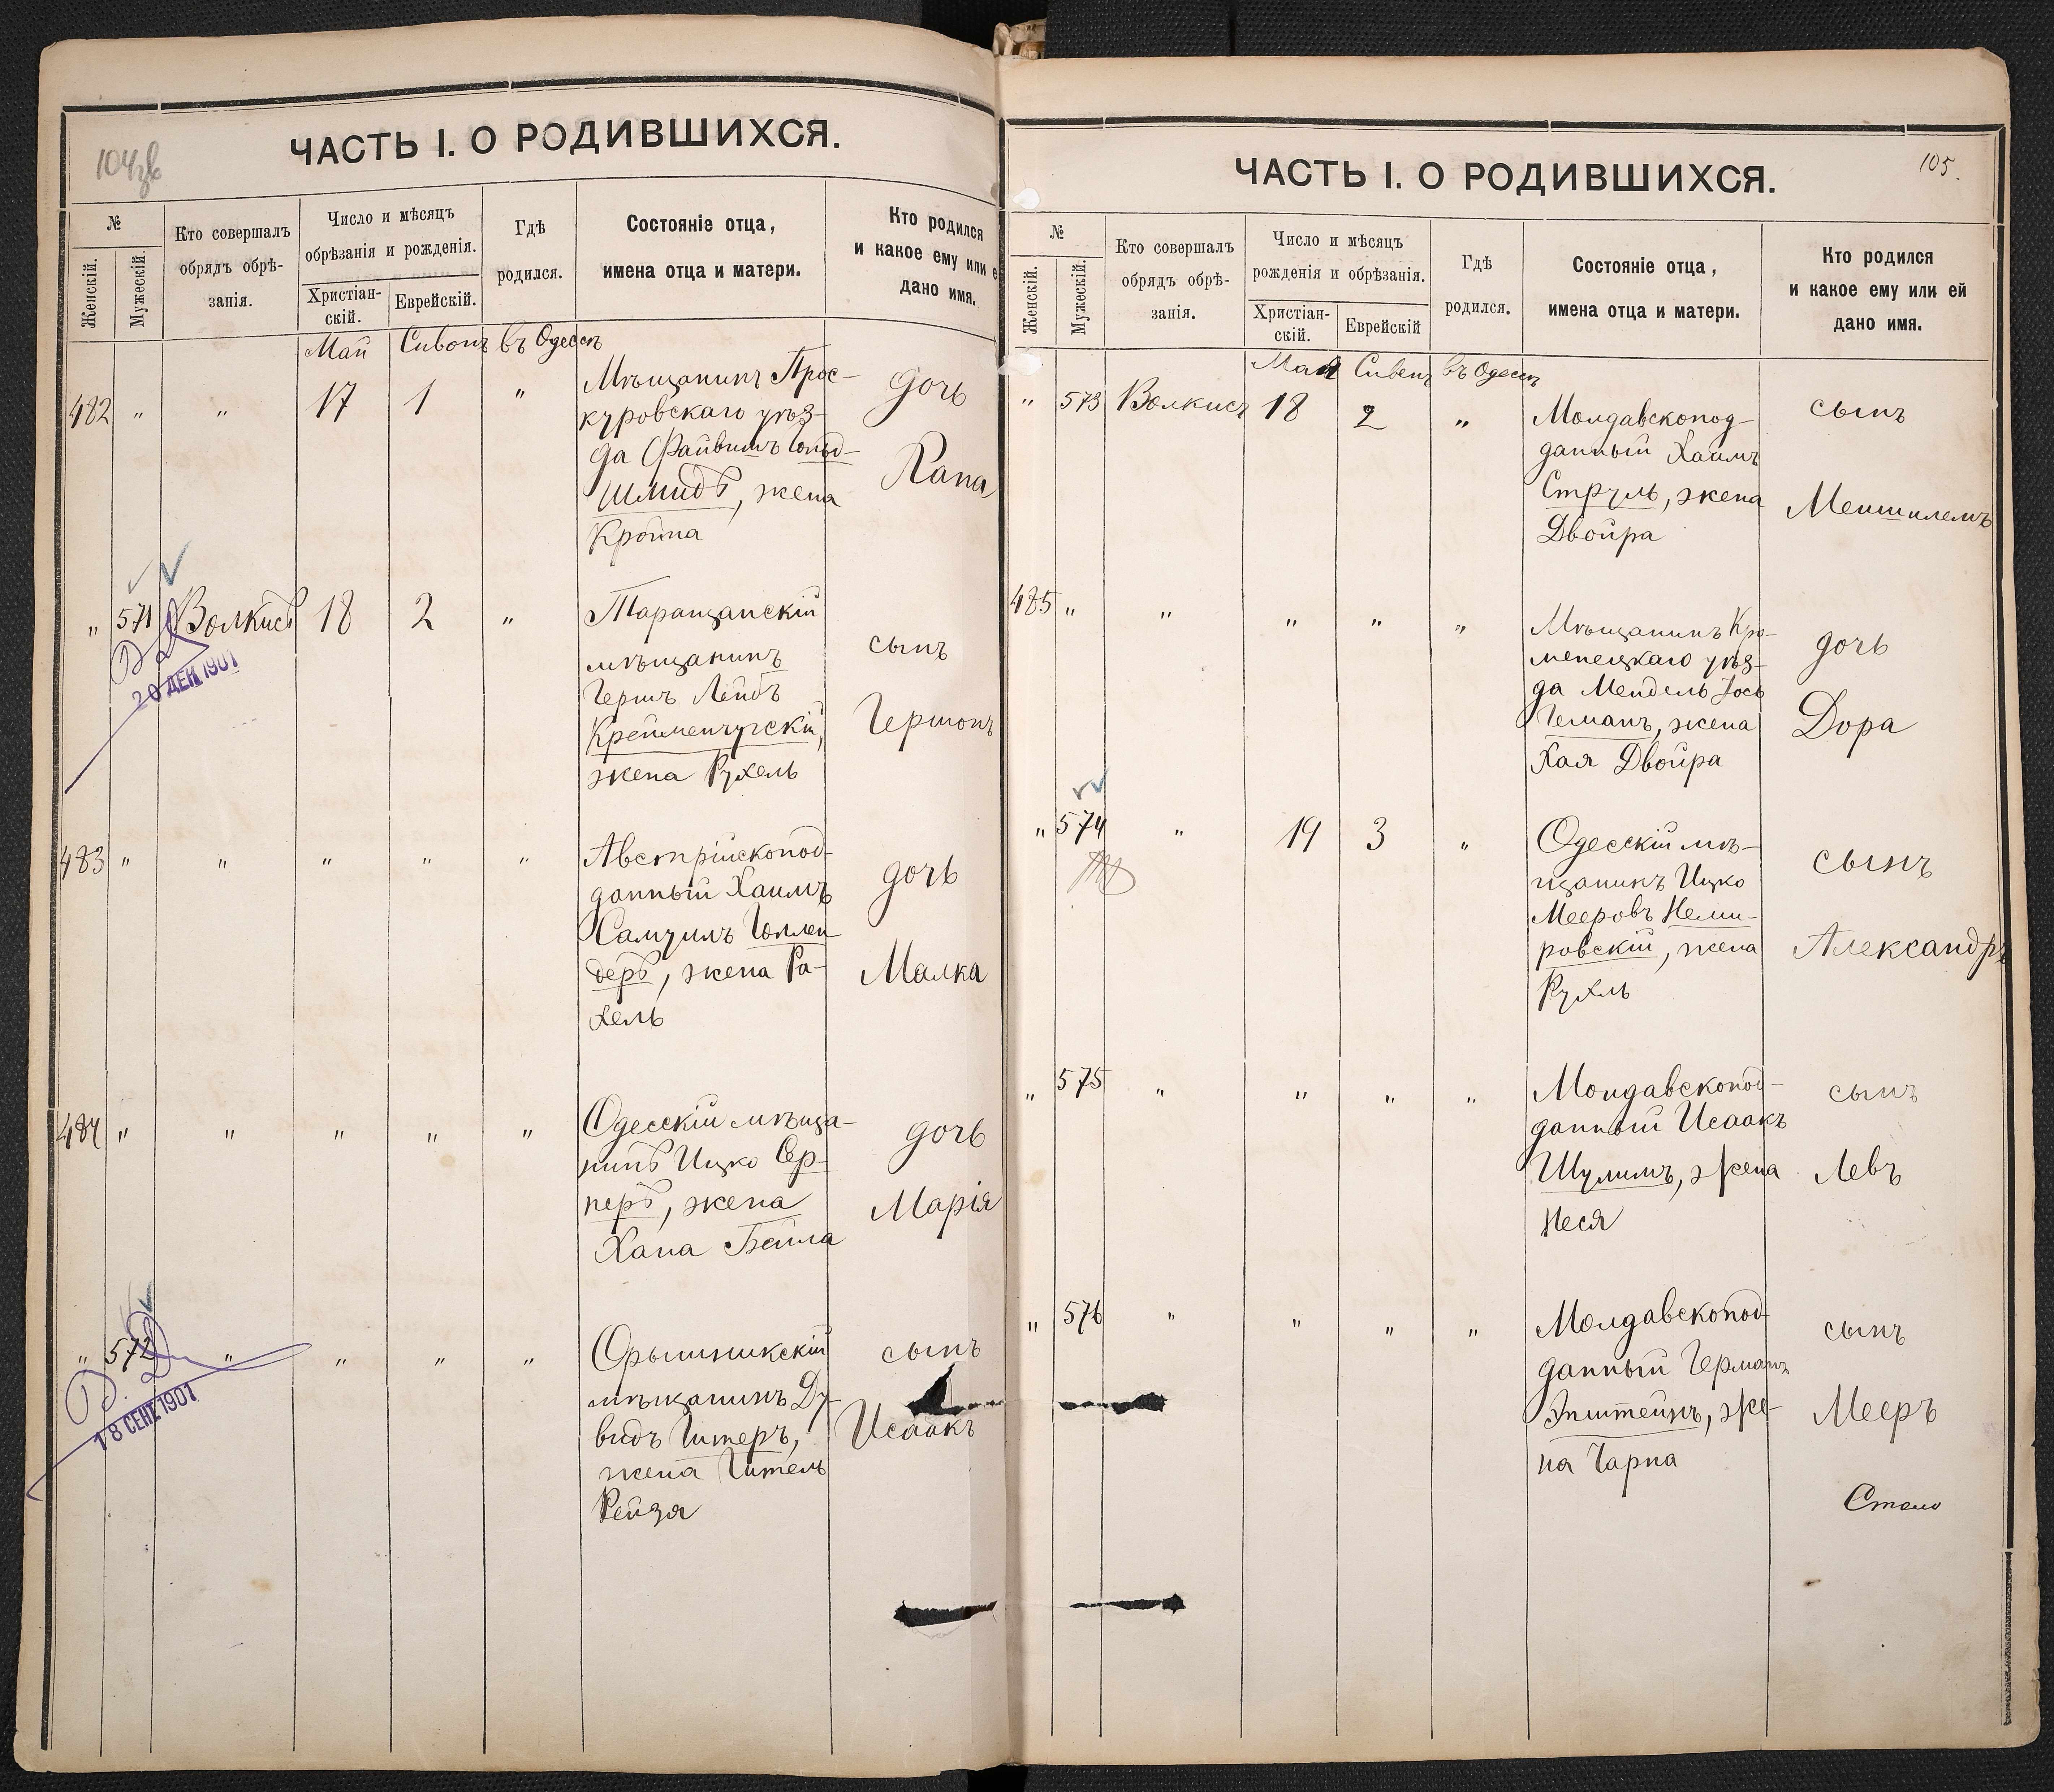 104об
ЧАСТЬ I. О РОДИВШИХСЯ.
№
Женскій.
Мужескій.
Кто совершалъ
обрядъ обрѣ-
занія.
Число и мѣсяцъ
обрѣзанія и рожденія.
Христіан-
скій.
Еврейскій.
Гдѣ
родился.
Состояніе отца,
имена отца и матери.
Кто родился
и какое ему или е
дано имя.
Май Сивонъ въ Одессѣ
482 " " 17 1 "
Мѣщанинъ Прос-
куровскаго уѣз-
да Файвишъ Гольд-
шмидъ, жена
Кройна
дочь
Хана
" 571 Волкисъ 18 2 "
20 ДЕК 1901
Таращанскій
мѣщанинъ
Гершъ Лейбъ
Кременчугскій,
жена Рухель
сынъ
Гершонъ
483 " " " " "
Австрійскопод-
данный Хаимъ
Самуилъ Геллен-
деръ, жена Ра-
хель
дочь
Малка
484 " " " " "
Одесскій мѣща-
нинъ Ицко Сер-
перъ, жена
Хана Бейла
дочь
Марія
" 572 " " " "
18 СЕНТ 1901
мѣщанинъ Ду-
видъ
жена Гитель
Рейзя
сынъ
Исаакъ
105.
ЧАСТЬ I. О РОДИВШИХСЯ.
№
Женскій.
Мужескій.
Кто совершалъ
обрядъ обрѣ-
занія.
Число и мѣсяцъ
рожденія и обрѣзанія.
Христіан-
скій.
Еврейскій
Гдѣ
родился.
Состояніе отца,
имена отца и матери.
Кто родился
и какое ему или ей
дано имя.
Май Сивенъ въ Одессѣ
" 573 Волкисъ 18 2 "
Молдавскопод-
данный Хаимъ
Струль, жена
Двойра
сынъ
Мешилемъ
485 " " " " "
Мѣщанинъ Кре-
менецкаго уѣз-
да Мендель Іось
Гелманъ, жена
Хая Двойра
дочь
Дора
" 574 " 19 3 "
Одесскій мѣ-
щанинъ Ицко
Мееровъ Неми-
ровскій, жена
Рухль
сынъ
Александръ
" 575 " " " "
Молдавскопод-
данный Исаакъ
Шулимъ, жена
Неся
сынъ
Левъ
" 576 " " " "
Молдавскопод-
данный Германъ
Эпштейнъ, же-
на Чарна
сынъ
Мееръ